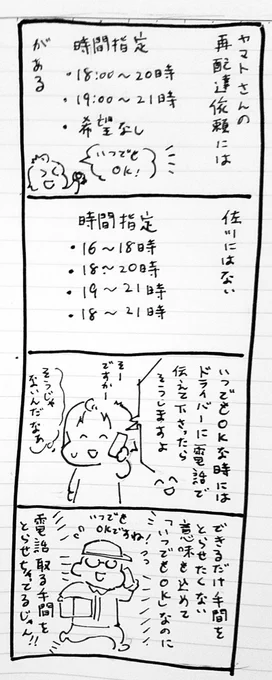 ヤマトさんの
再配達依頼には
時間指定
・18:00〜20時
・19:00〜21時
・希望なし
がある
いつでも
OK!
佐川にはない
時間指定
・16〜18時
・18〜20時
・19〜21時
・18〜21時
いつでもOKな時には
ドライバーに電話で
伝えて下さったら
そうしますよ
そー
ですかー
そうじゃ
ないんだなぁ
できるだけ手間を
とらせたくない
意味も込めて
「いつでもOK」なのに
いつでも
OKですね!
電話取る手間を
とらせちゃってるじゃん!!